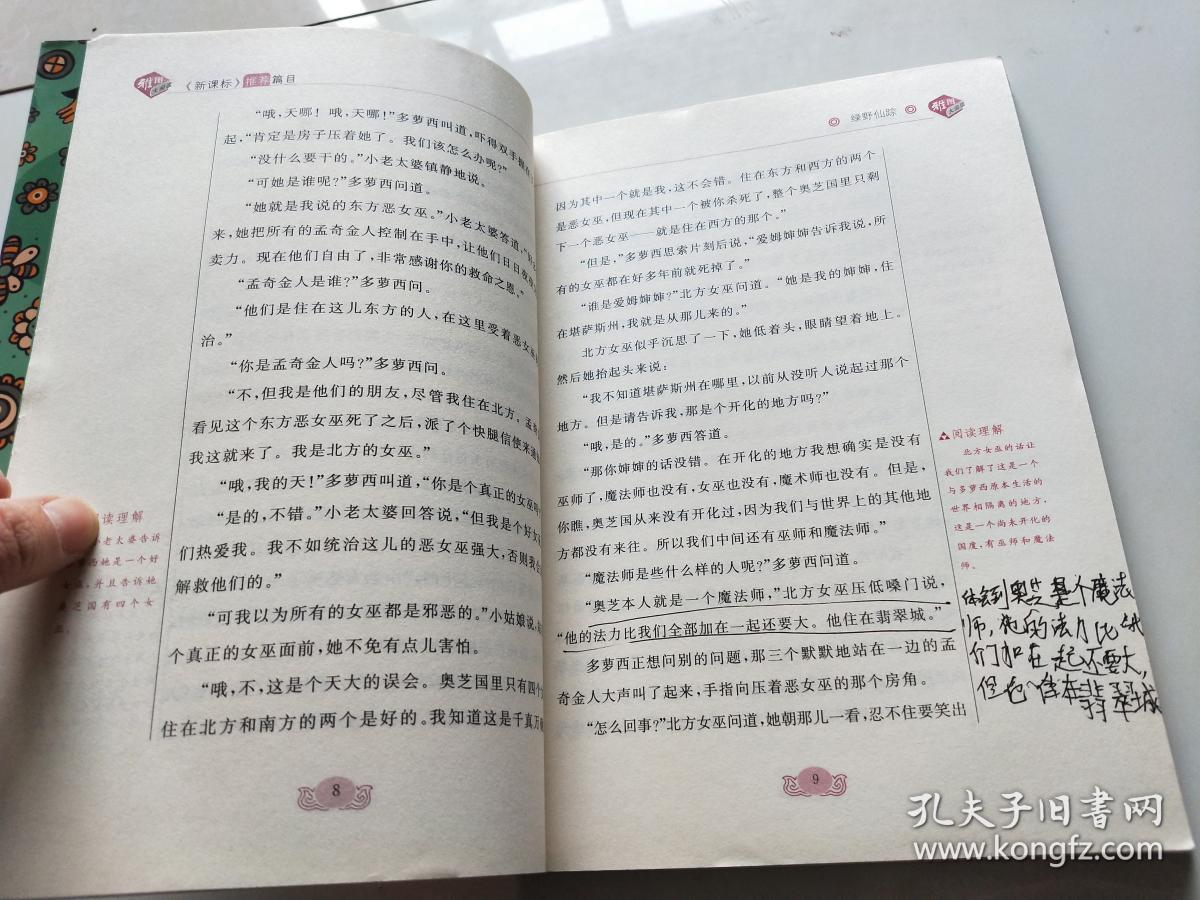 《新课标》推荐篇目
“哦，天哪！哦，天哪！”多萝西叫道，吓得双手握在
起，“肯定是房子压着她了。我们该怎么办呢？”
“没什么要干的。”小老太婆镇静地说。
“可她是谁呢？”多萝西问道。
“她就是我说的东方恶女巫。”小老太婆答道，
来，她把所有的孟奇金人控制在手中，让他们日日夜夜
卖力。现在他们自由了，非常感谢你的救命之恩。”
“孟奇金人是谁？”多萝西问。
“他们是住在这儿东方的人，在这里受着恶女巫
治。”
“你是孟奇金人吗？”多萝西问。
“不，但我是他们的朋友，尽管我住在北方。孟奇
看见这个东方恶女巫死了之后，派了个快腿信使来通
我这就来了。我是北方的女巫。”
“哦，我的天！”多萝西叫道，“你是个真正的女巫
“是的，不错。”小老太婆回答说，“但我是个好女
们热爱我。我不如统治这儿的恶女巫强大，否则我
解救他们的。”
“可我以为所有的女巫都是邪恶的。”小姑娘说，
个真正的女巫面前，她不免有点儿害怕。
“哦，不，这是个天大的误会。奥芝国里只有四个
住在北方和南方的两个是好的。我知道这是千真万
读理解
老太婆告诉
西她是一个好
，并且告诉她
奥芝国有四个女
巫。
8
绿野仙踪
因为其中一个就是我，这不会错。住在东方和西方的两个
是恶女巫，但现在其中一个被你杀死了，整个奥芝国里只剩
下一个恶女巫——就是住在西方的那个。”
“但是，”多萝西思索片刻后说，“爱姆婶婶告诉我说，所
有的女巫都在好多年前就死掉了。”
“谁是爱姆婶婶？”北方女巫问道。“她是我的婶婶，住
在堪萨斯州，我就是从那儿来的。”
北方女巫似乎沉思了一下，她低着头，眼睛望着地上。
然后她抬起头来说：
“我不知道堪萨斯州在哪里，以前从没听人说起过那个
地方。但是请告诉我，那是个开化的地方吗？”
“哦，是的。”多萝西答道。
“那你婶婶的话没错。在开化的地方我想确实是没有
巫师了，魔法师也没有，女巫也没有，魔术师也没有。但是，
你瞧，奥芝国从来没有开化过，因为我们与世界上的其他地
方都没有来往。所以我们中间还有巫师和魔法师。”
“魔法师是些什么样的人呢？”多萝西问道。
“奥芝本人就是一个魔法师，”北方女巫压低嗓门说，
“他的法力比我们全部加在一起还要大。他住在翡翠城。”
多萝西正想问别的问题，那三个默默地站在一边的孟
奇金人大声叫了起来，手指向压着恶女巫的那个房角。
“怎么回事？”北方女巫问道，她朝那儿一看，忍不住要笑出
阅读理解
北方女巫的话让
我们了解了这是一个
与多萝西原本生活的
世界相隔离的地方，
这是一个尚未开化的
国度，有巫师和魔法
师。
体会到奥芝是个魔法
师，他的法力比她
们加在一起还要大，
但也住在翡翠城
9
孔夫子旧书网
www.kongfz.com